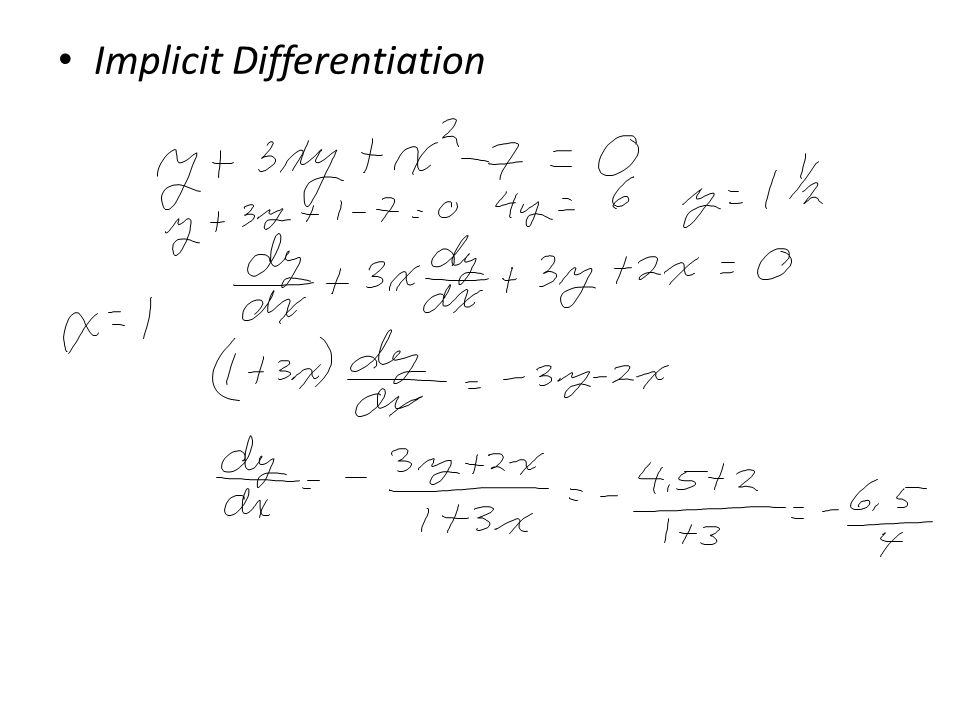 • Implicit Differentiation
y + 3xy + x² - 7 = 0
y + 3y + 1 - 7 = 0 4y = 6 y = 1 1/2
dy/dx + 3x dy/dx + 3y + 2x = 0
x = 1
(1 + 3x) dy/dx = -3y - 2x
dy/dx = - 3y+2x/1+3x = - 4.5+2/1+3 = - 6.5/4